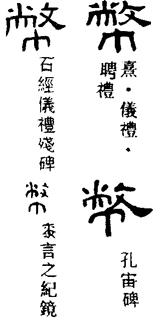 幣
熹．儀禮．
聘禮
幣
孔宙碑
幣
石經儀禮殘碑
幣
桼言之紀鏡